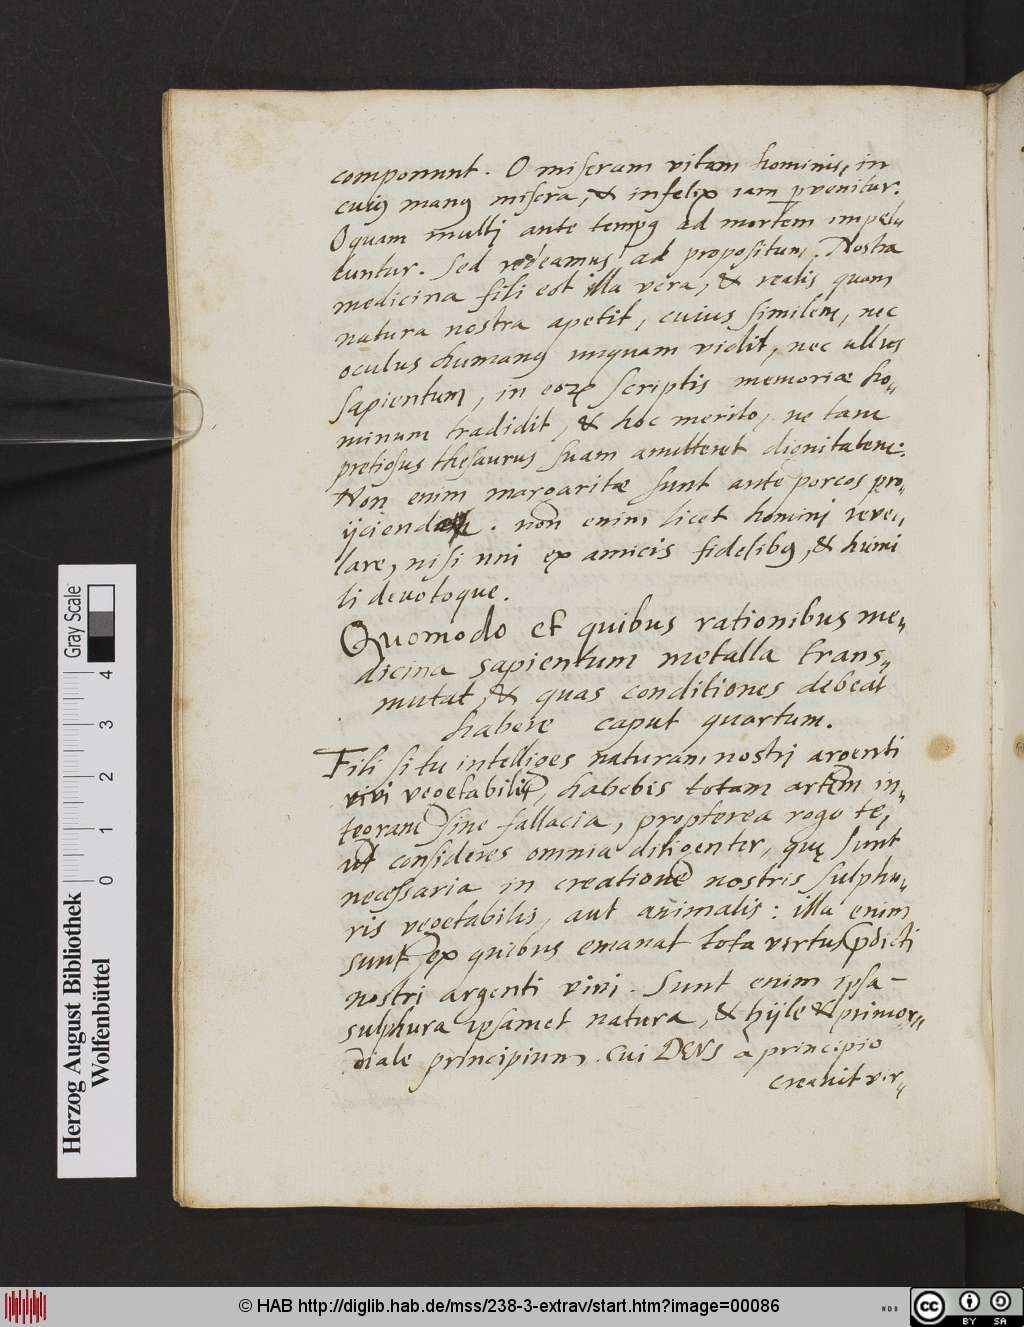 componunt. O miseram vitam hominis, in
cuiꝰ manꝰ misera, & infelix iam pervenitur.
O quam multj ante tempꝰ ad mortem impel„
luntur. Sed redeamus ad propositum, Nostra
medicina fili est illa vera, & realis quam
natura nostra apetit, cuius similem, nec
oculus humanꝰ unquam vidit, nec allus
sapientum, in eoꝝ scriptis memoriæ ho„
minum tradidit, & hoc merito, ne tam
pretiosus thesaurus suam amitteret dignitatem.
Non enim margaritæ sunt ante porcos pro„
ijciendæ. non enim licet hominj reve„
lare, nisi uni ex amicis fidelibꝰ, & humi
li devotoque.
Quomodo et quibus rationibus me„
dicina sapientum metalla trans„
mutat, & quas conditiones debeat
habere caput quartum.
Fili si tu intelliges naturam nostrj argenti
vivi vegetabilis, habebis totam artem in„
tegram sine fallacia, propterea rogo te,
ut consideres omnia diligenter, quę sunt
necessaria in creatione nostris sulphu„
ris vegetabilis, aut animalis: illa enim
sunt ex quibus emanat tota virtus pdicti
nostri argenti vivi. Sunt enim ipsa
sulphura ipsamet natura, & hijle & primor„
diale principium. Cui DEUS à principio
creavit vir„
Herzog August Bibliothek
Wolfenbüttel
Gray Scale
0 1 2 3 4
© HAB http://diglib.hab.de/mss/238-3-extrav/start.htm?image=00086
NDB
cc BY SA